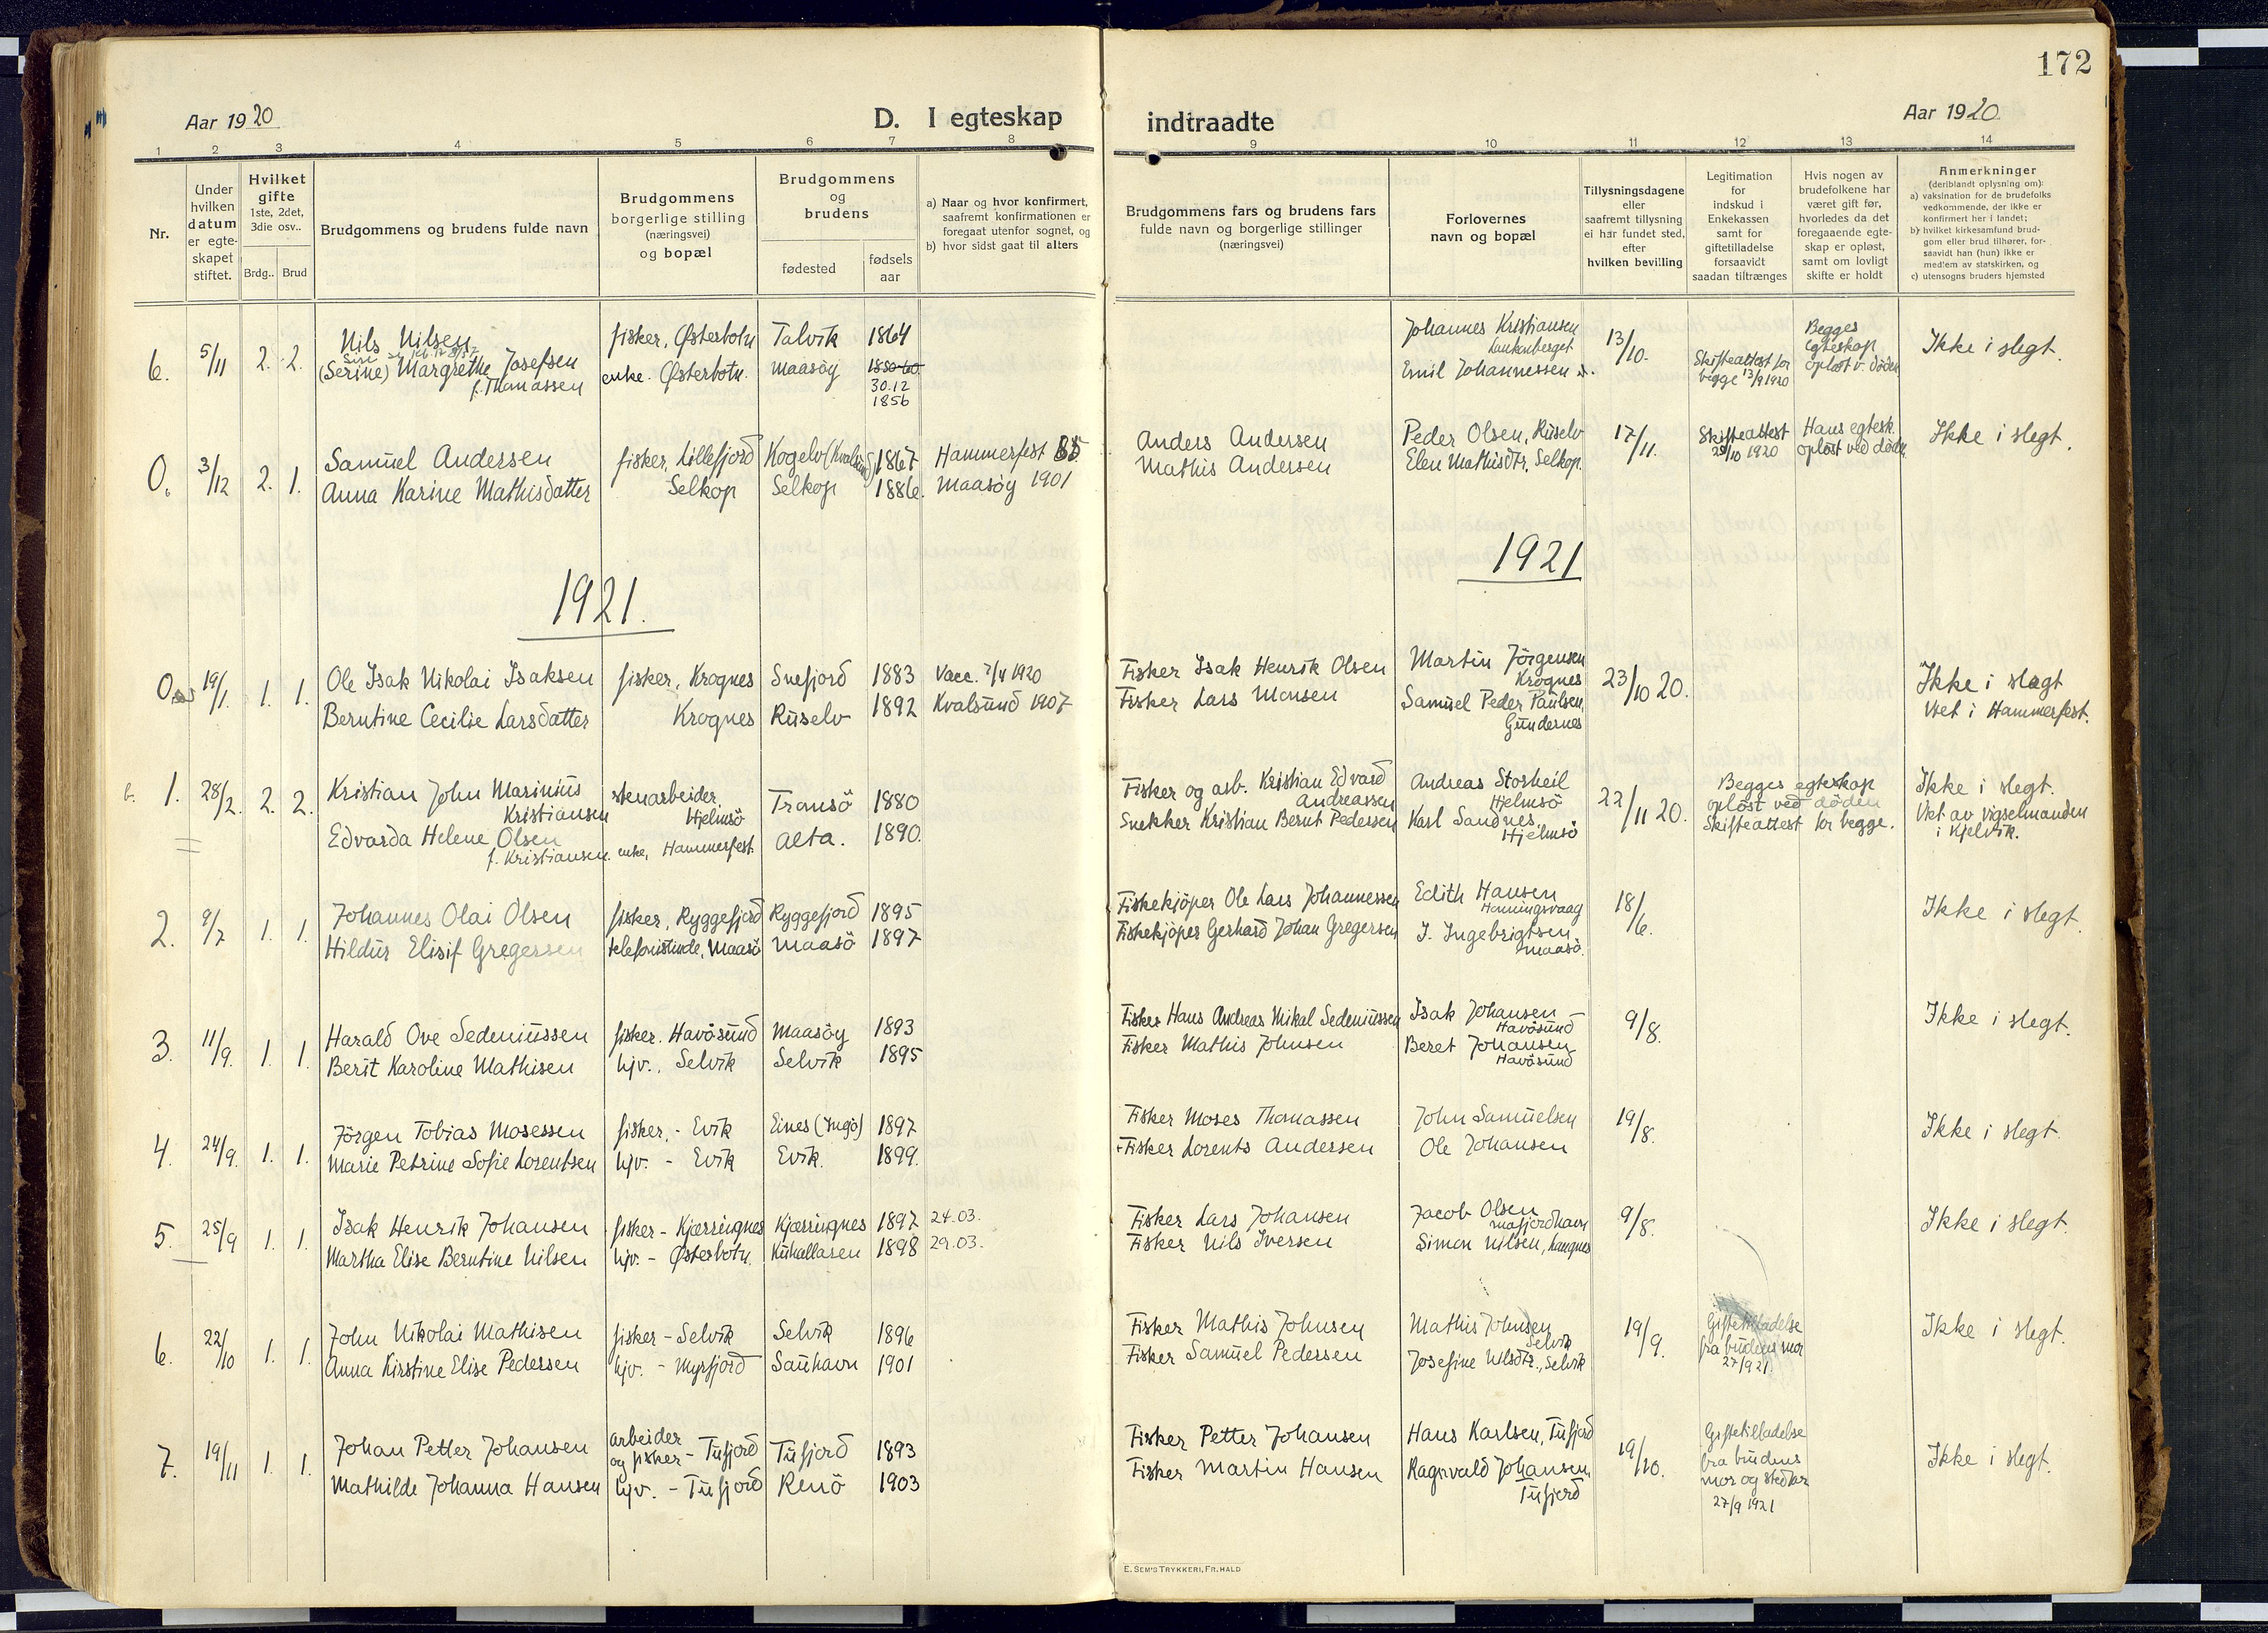 172
Aar 1920
D. I egteskap
indtraadte
Aar 1920.
1 2 3 4 5 6 7 8 9 10 11 12 13 14
Nr.
Under
hvilken
datum
er egte-
skapet
stiftet.
Hvilket
gifte
1ste, 2det,
3die osv..
Brdg.. Brud
Brudgommens og brudens fulde navn
Brudgommens
borgerlige stilling
(næringsvei)
og bopæl
Brudgommens
og
brudens
fødested
fødsels
aar
a) Naar og hvor konfirmert,
saafremt konfirmationen er
foregaat utenfor sognet, og
b) hvor sidst gaat til alters
Brudgommens fars og brudens fars
fulde navn og borgerlige stillinger
(næringsvei)
Forlovernes
navn og bopæl
Tillysningsdagene
eller
saafremt tillysning
ei har fundet sted,
efter
hvilken bevilling
Legitimation
for
indskud i
Enkekassen
samt for
giftetilladelse
forsaavidt
saadan tiltrænges
Hvis nogen av
brudefolkene har
været gift før,
hvorledes da det
foregaaende egte-
skap er opløst,
samt om lovligt
skifte er holdt
Anmerkninger
(deriblandt oplysning om):
a) vaksination for de brudefolks
vedkommende, der ikke er
konfirmert her i landet;
b) hvilket kirkesamfund brud-
gom eller brud tilhører, for-
saavidt han (hun) ikke er
medlem av statskirken, og
c) utensogns bruders hjemsted
6. 5/11 2. 2.
Nils Nilsen
(Serine) Margrethe Josefsen
f. Thomassen
fisker, Østerbotn
enke. Østerbotn.
Talvik 1864
Maasöy 1850-60
30.12
1856
Johannes Kristiansen
Emil Johannessen
13/10.
Skifteattest for
begge 13/9 1920
Begges
egteskap
opløst v. døden
Ikke i slegt.
0. 3/12 2. 1.
Samuel Andersen
Anna Karine Mathisdatter
fisker, Lillefjord
Selkop
Kogelv (Kvalsund) 1867
Selkop 1886.
Hammerfest 85
Maasöy 1901
Anders Andersen
Mathis Andersen
Peder Olsen, Ruselv
Elen Mathisdtr, Selkop.
17/11.
Skifteattest
29/10 1920
Hans egtesk.
opløst ved døden
Ikke i slegt.
1921.
1921
0. 19/1. 1. 1.
Ole Isak Nikolai Isaksen
Berntine Cecilie Larsdatter
fisker, Krognes
Krognes
Snefjord 1883
Ruselv 1892
Vacc. 7/4 1920
Kvalsund 1907
Fisker Isak Henrik Olsen
Fisker Lars Monsen
Martin Jörgensen
Krognes
Samuel Peder Paulsen,
Gundernes
23/10 20.
Ikke i slegt
Viet i Hammerfest.
1. 28/2. 2. 2.
Kristian John Marinius
Kristiansen
Edvarda Helene Olsen
f. Kristiansen.
stenarbeider
Hjelmsö
enke, Hammerfest.
Tromsö 1880
Alta. 1890.
Fisker og arb. Kristian Edvard
Andreassen
Snekker Kristian Bernt Pedersen
Andreas Storheil
Hjelmsö
Karl Sandnes,
Hjelmsö
22/11 20.
Begges egteskap
opløst ved døden
Skifteattest for begge.
Ikke i slegt.
Viet av vigselmanden
i Kjelvik.
2. 9/7 1. 1.
Johannes Olai Olsen
Hildur Elisif Gregersen
fisker, Ryggefjord
telefonistinde, Maasö
Ryggefjord 1895
Maasö 1897
Fiskekjöper Ole Lars Johannessen
Fiskekjöper Gerhard Johan Gregersen
Edith Hansen
Honningsvaag
J. Ingebrigtsen
Maasö.
18/6.
Ikke i slegt.
3. 11/9. 1. 1.
Harald Ove Sedeniussen
Berit Karoline Mathisen
fisker. Havösund
hjv., Selvik
Maasöy 1893
Selvik 1895
Fisker Hans Andreas Mikal Sedeniussen
Fisker Mathis Johnsen
Isak Johansen
Havösund
Beret Johansen
Havösund
9/8.
Ikke i slegt.
4. 24/9. 1. 1.
Jörgen Tobias Mosessen
Marie Petrine Sofie Lorentsen
fisker, - Evik
hjv. - Evik
Eines (Ingö) 1897
Evik. 1899.
Fisker Moses Thomassen
Fisker Lorents Andersen
John Samuelsen
Ole Johansen
19/8.
Ikke i slegt.
5. 25/9 1. 1.
Isak Henrik Johansen
Martha Elise Berntine Nilsen
fisker - Kjærringnes
hjv. - Østerbotn.
Kjærringnes 1897 24.03.
Kuhallaren 1898 29.03.
Fisker Lars Johansen
Fisker Nils Iversen
Jacob Olsen
Mafjordhavn
Simon Nilsen, Langnes
9/8.
Ikke i slegt.
6. 22/10 1. 1.
John Nikolai Mathisen
Anna Kirstine Elise Pedersen
fisker - Selvik
hjv. - Myrfjord
Selvik 1896
Sauhavn 1901
Fisker Mathis Johnsen
Fisker Samuel Pedersen
Mathis Johnsen
Selvik
Josefine Nilsdtr., Selvik
19/9.
Giftetilladelse
fra brudens mor
27/9 21.
Ikke i slegt.
7. 19/11 1. 1.
Johan Petter Johansen
Mathilde Johanna Hansen
arbeider
og fisker - Tufjord
hjv. - Tufjord
Tufjord 1893
Renö 1903
Fisker Petter Johansen
Fisker Martin Hansen
Hans Karlsen, Tufjord
Ragnvald Johansen,
Tufjord
19/10.
Giftetilladelse
fra brudens
mor og stedfar
27/9 1921
Ikke i slegt.
E. SEM'S TRYKKERI, FR. HALD